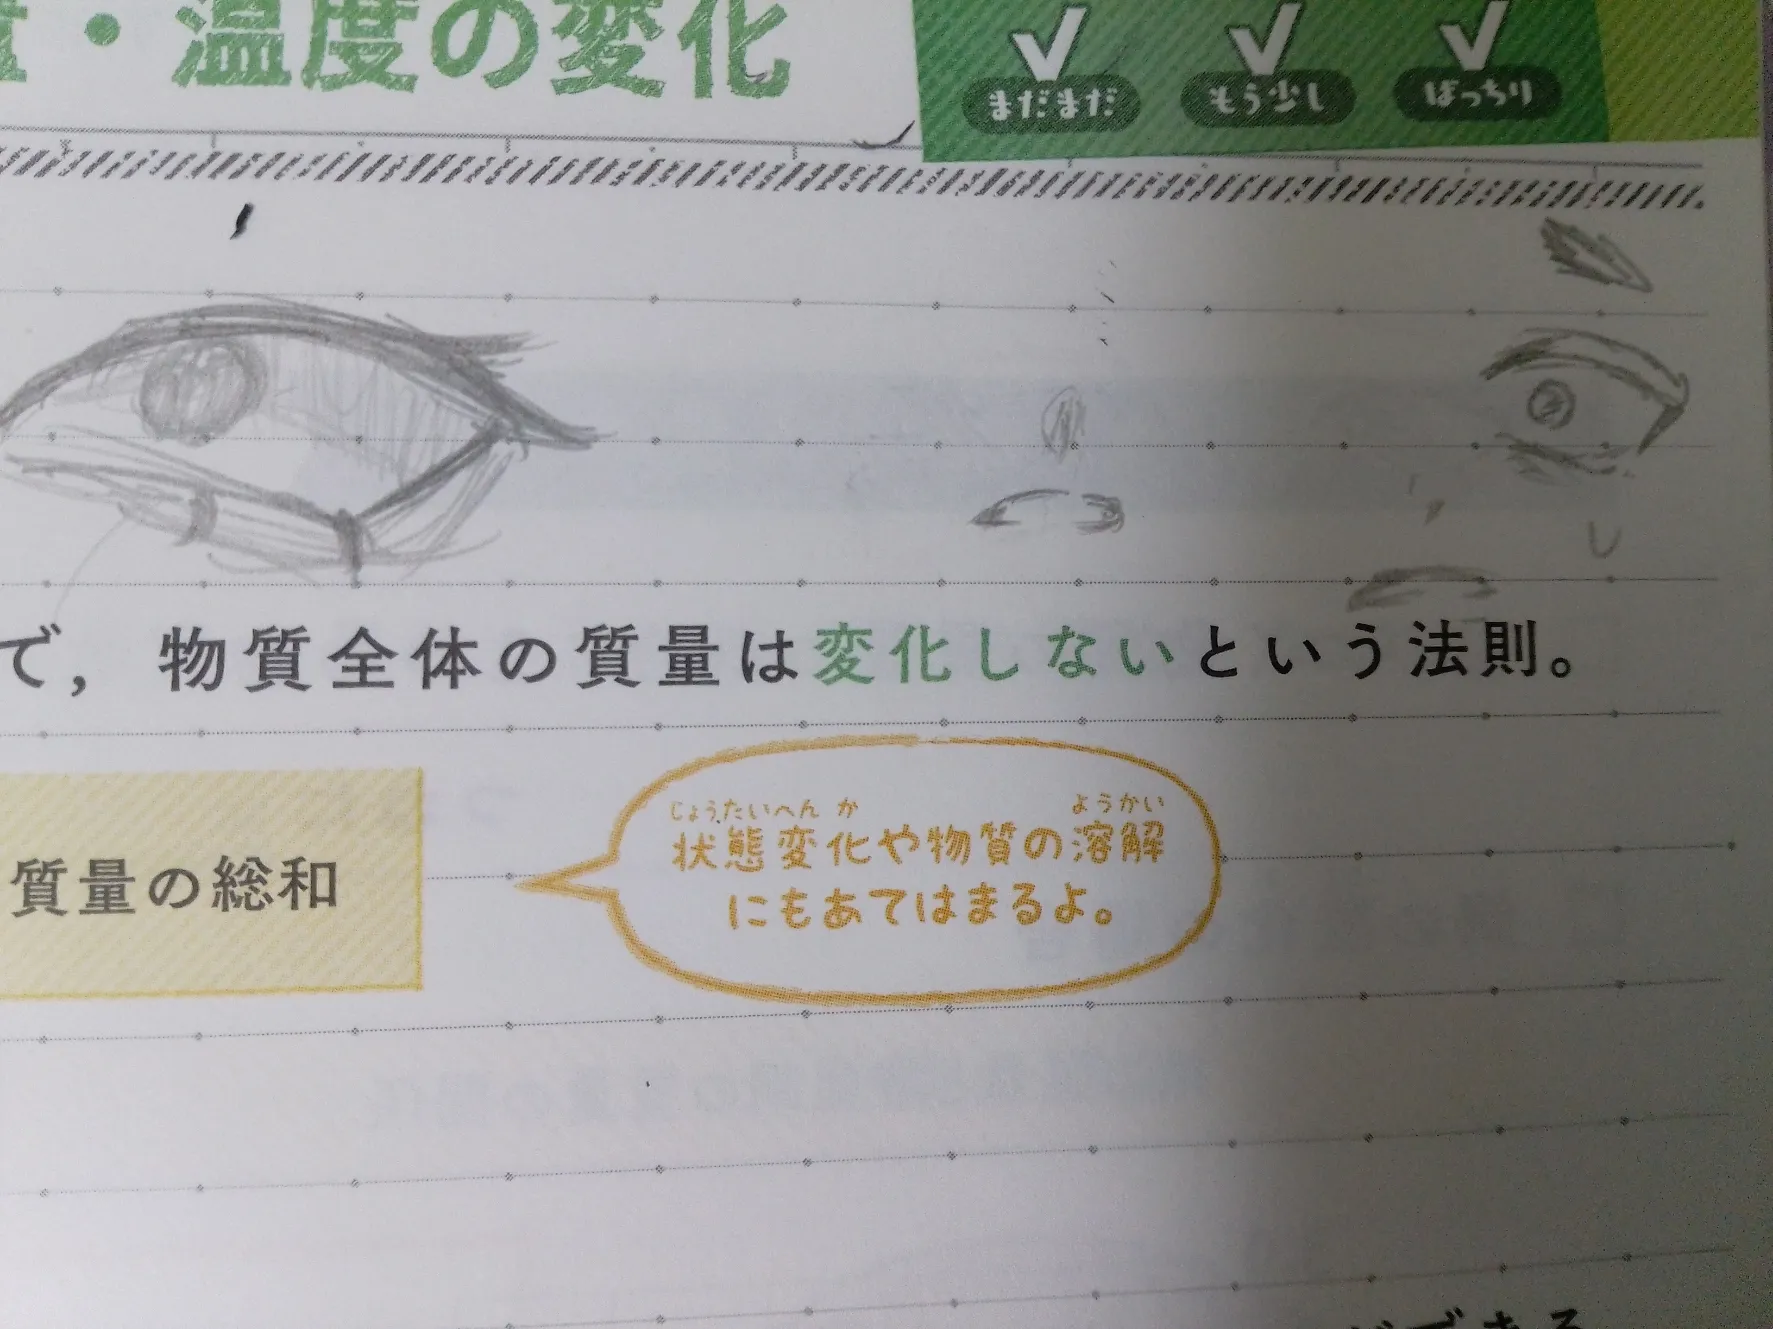 ・温度の変化
まだまだ
もう少し
ばっちり
で，物質全体の質量は変化しないという法則。
質量の総和
じょうたいへんか ようかい
状態変化や物質の溶解
にもあてはまるよ。